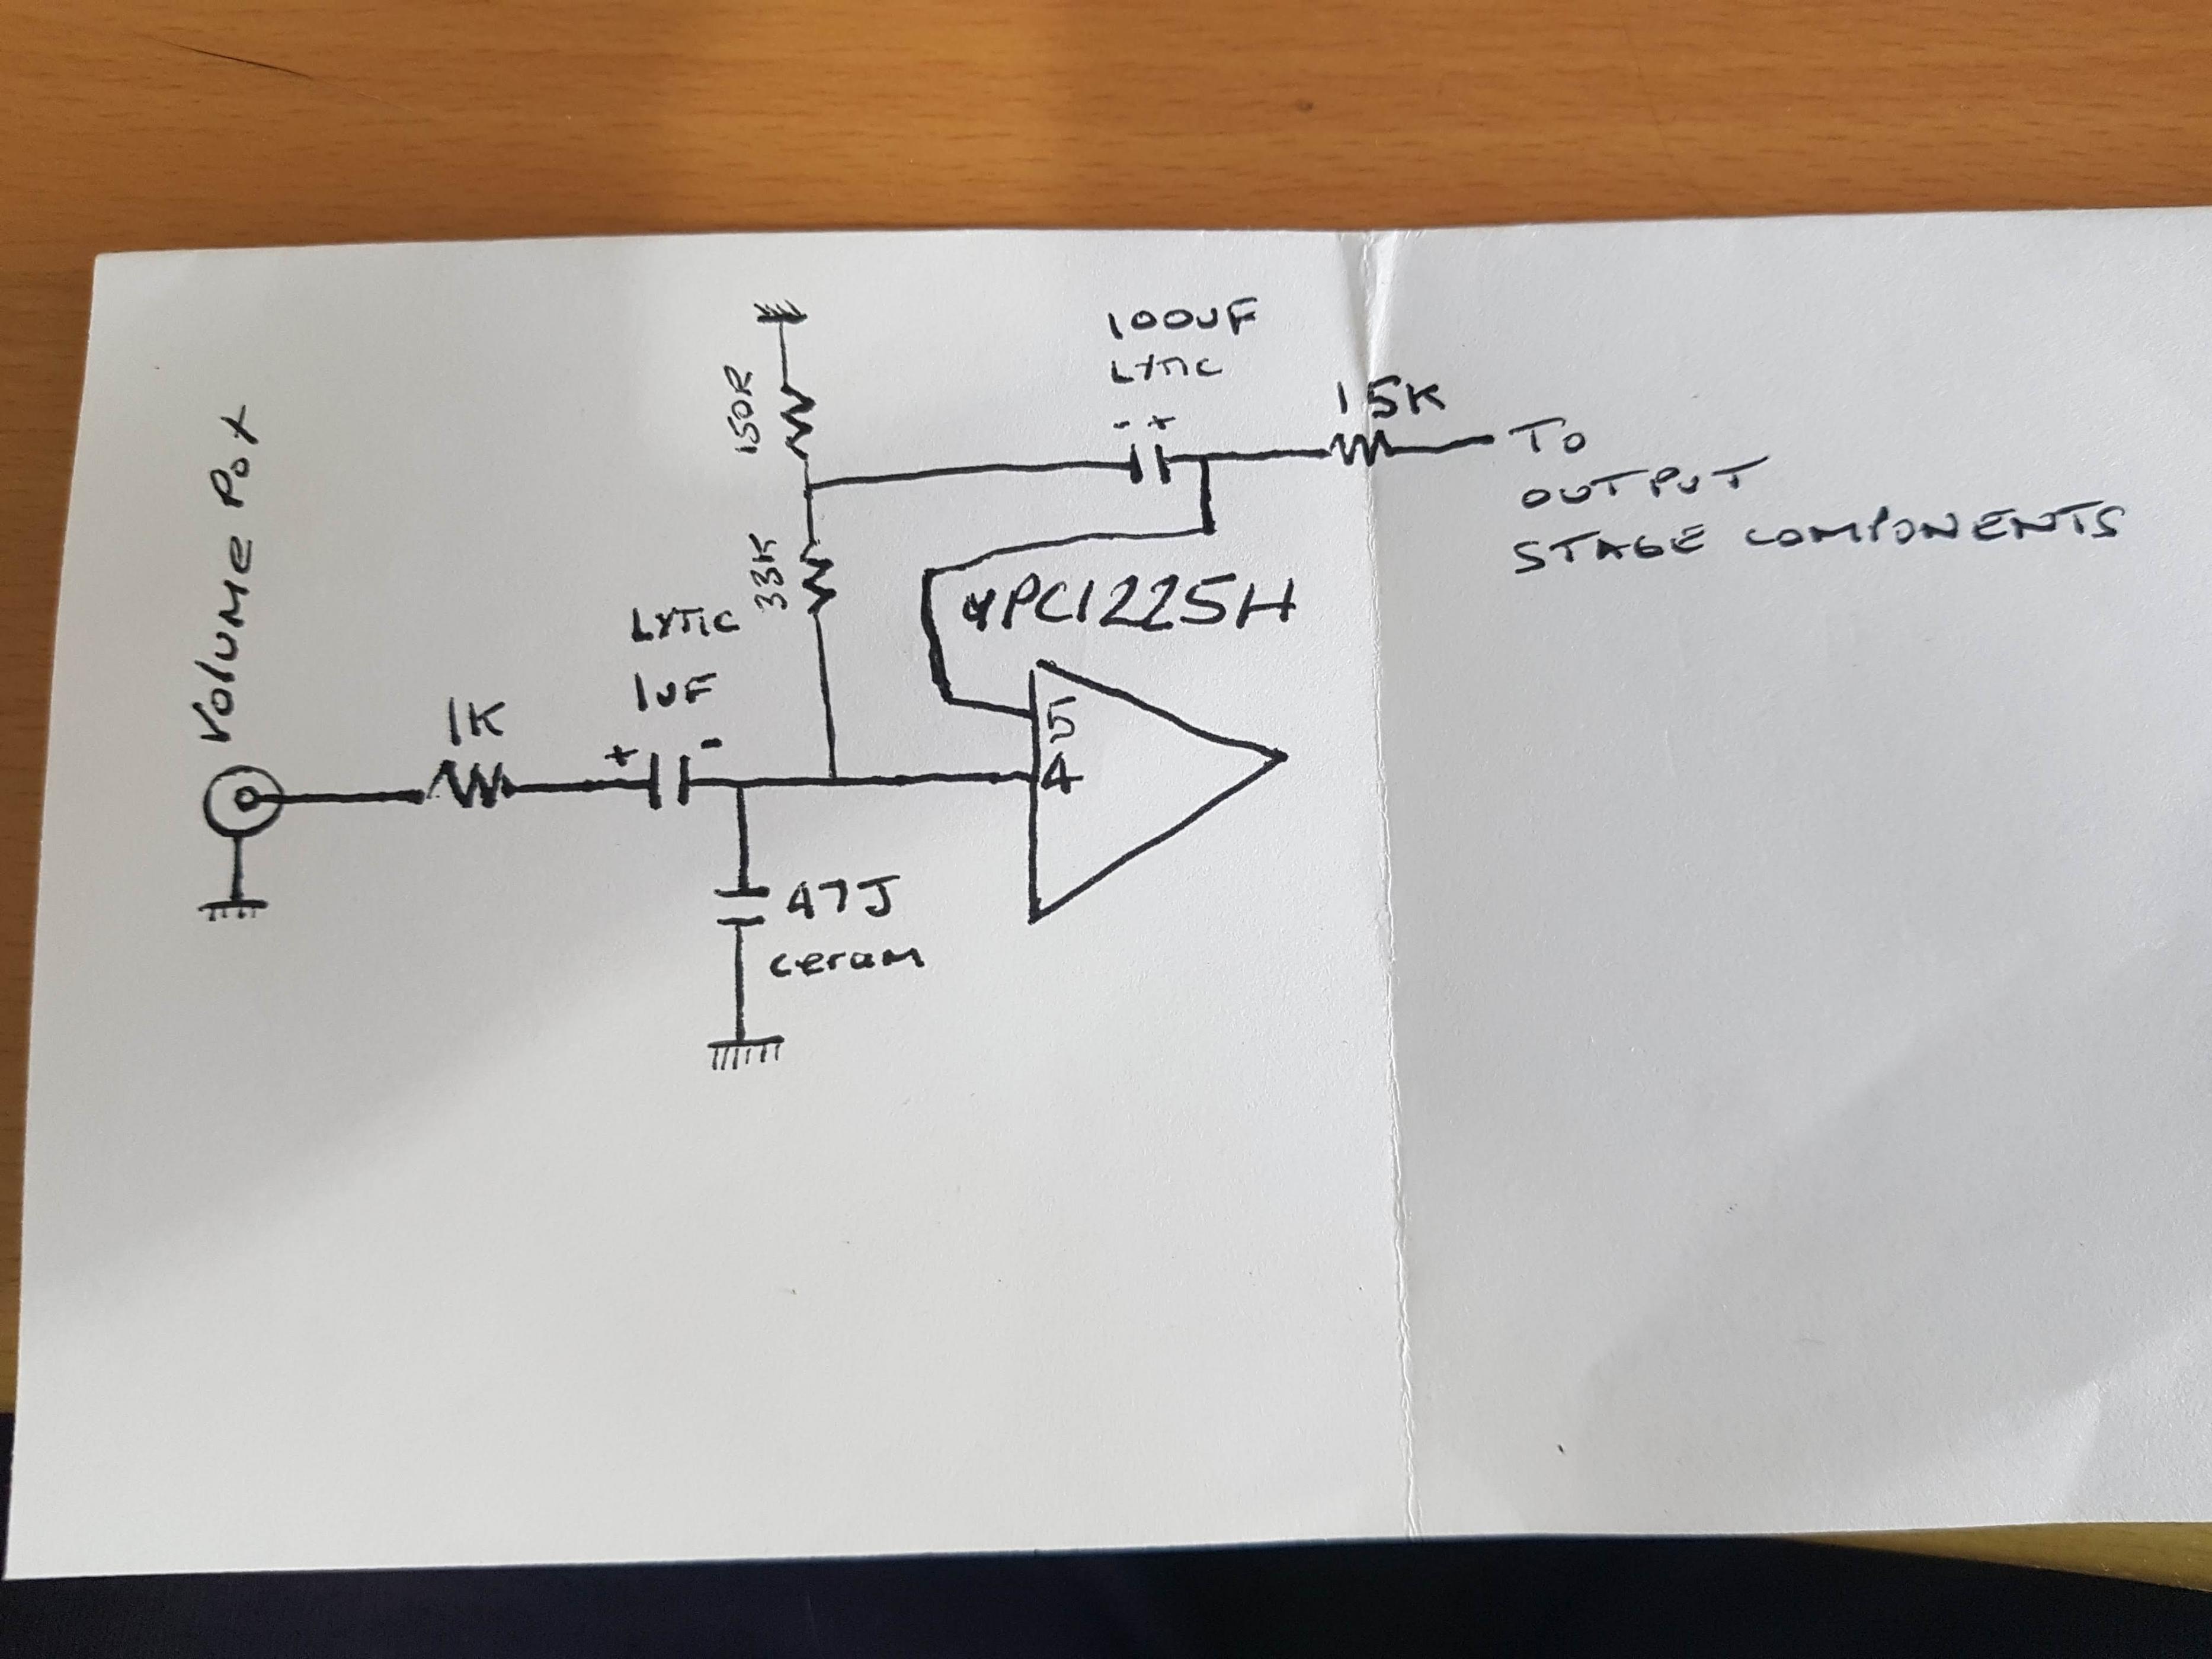 Volume Pot
1K
LYTIC
1uF
+ -
150R
33K
100uF
LYTIC
- +
15K
TO
OUTPUT
STAGE COMPONENTS
µPC1225H
5
4
47J
ceram